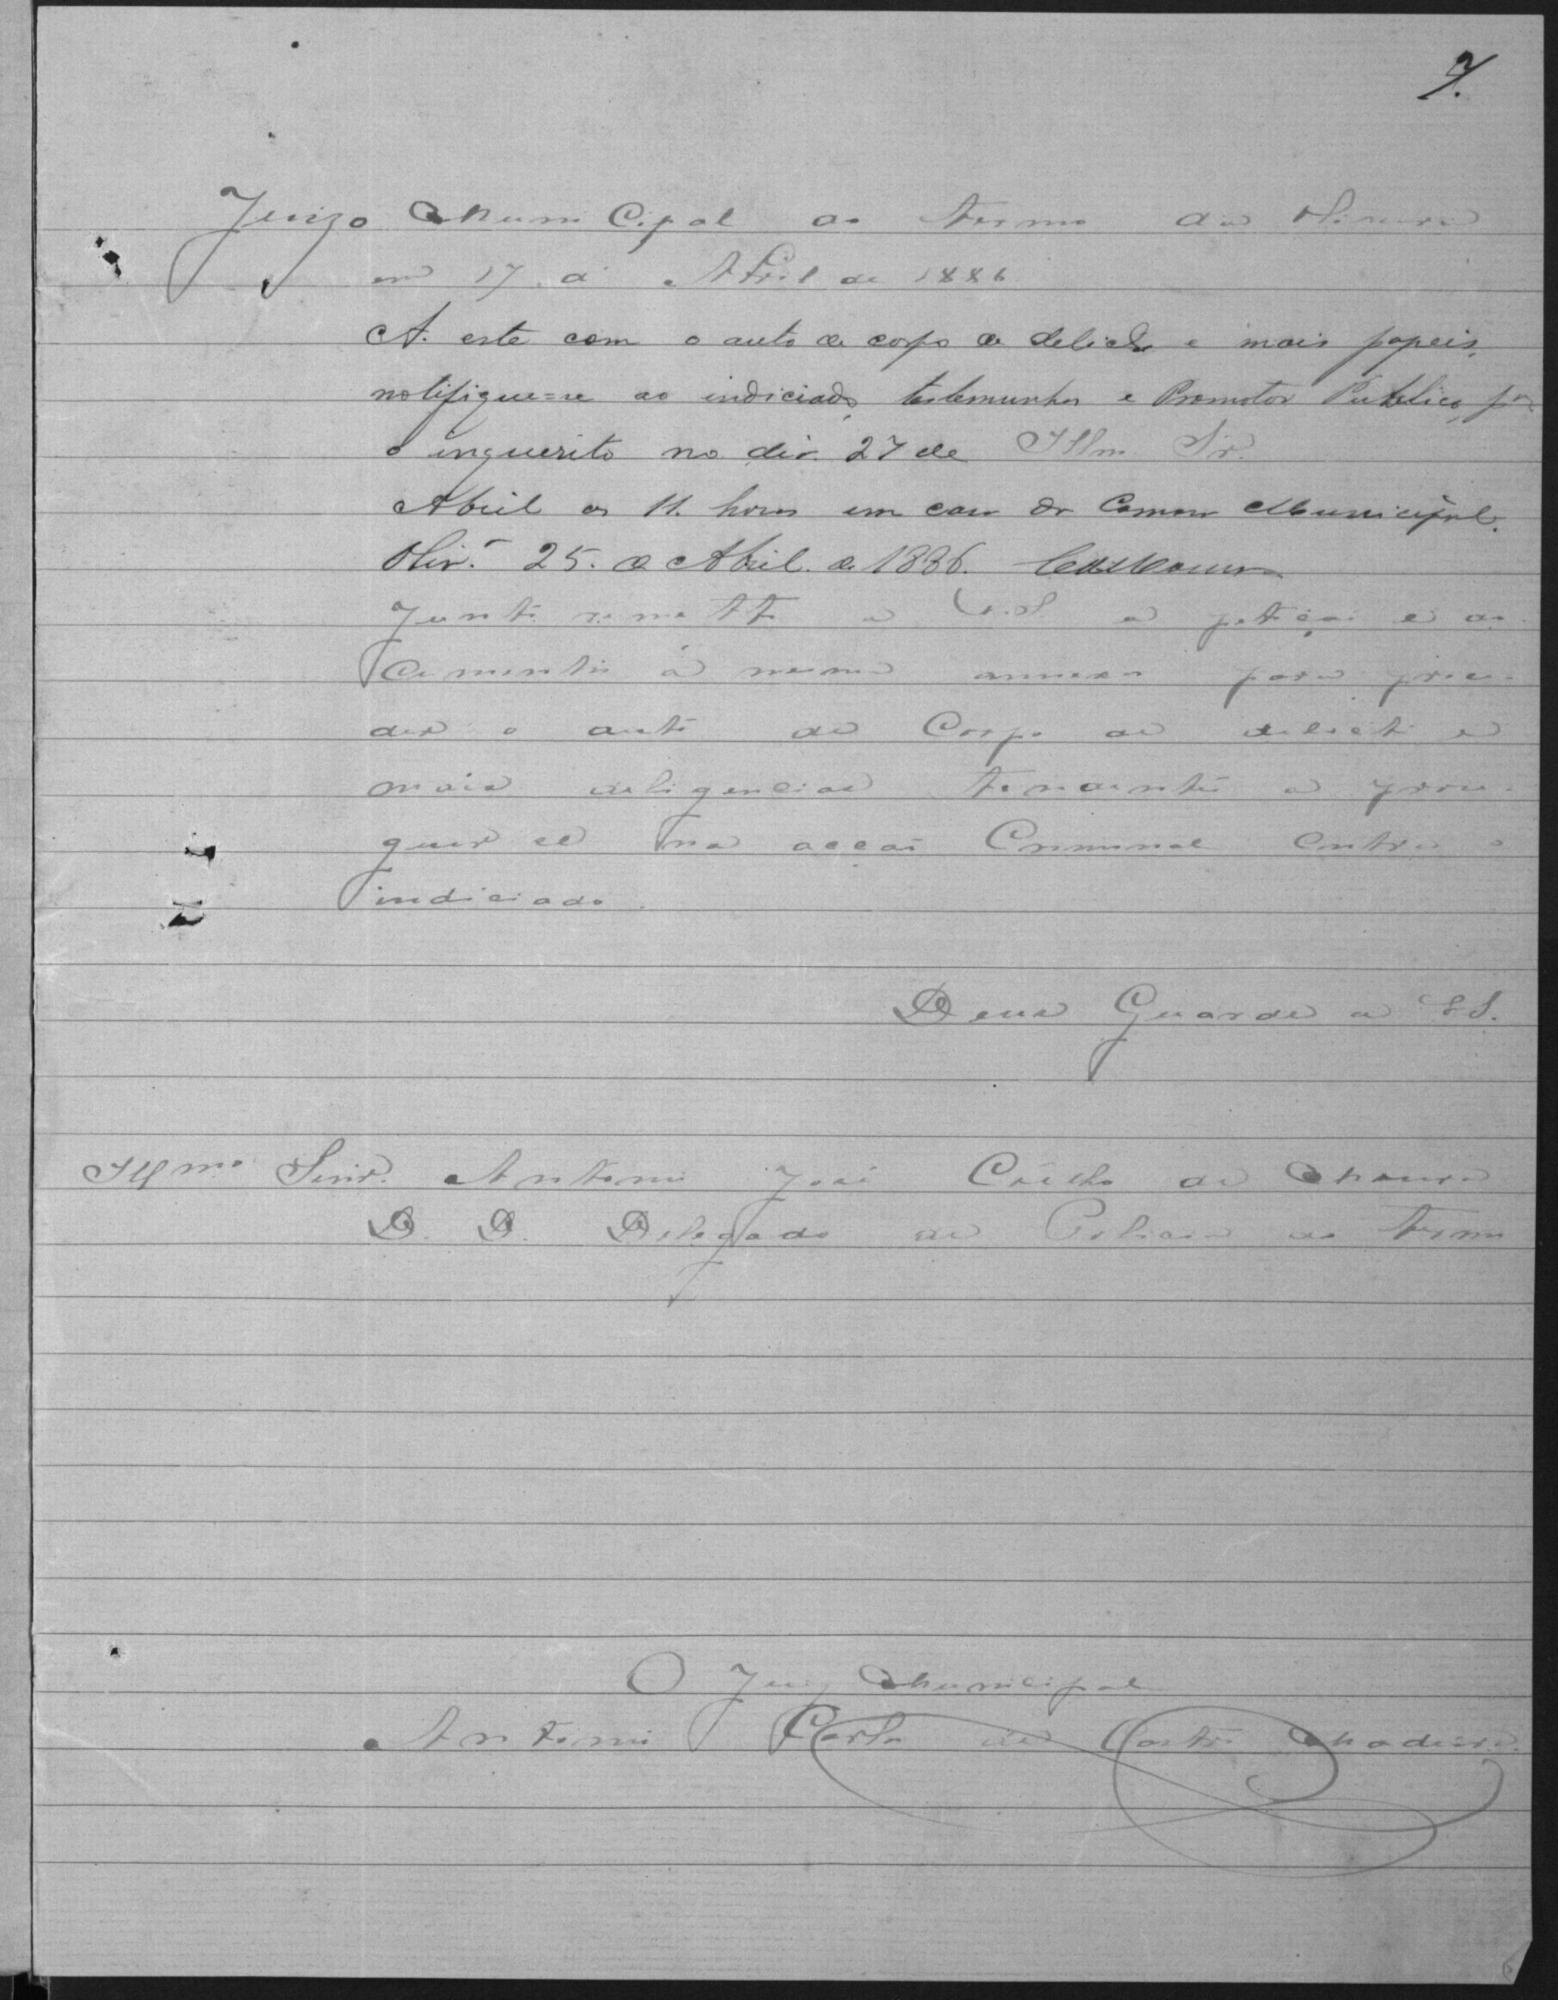 7.
Juizo Municipal do Termo de Oliveira
em 17 de Abril de 1886
A. este com o auto de corpo de delicto e mais papeis,
notifique=se ao indiciado, testemunhas e Promotor Publico, pa
o inquerito no dia 27 de Illm Sr.
Abril as 11. horas em casa da Camara Municipal.
Olivra 25. de Abril. de 1886.
Junto remetto a V.S. a petição e do
cumentos á mesma annexos para proce-
der o auto de Corpo de delicto e
mais deligencias tendentes a prose-
guir se na acção Criminal contra o
indiciado.
Deus Guarde a V.S.
Illmo Senr. Antonio José Coêlho de Moura
D. D. Delegado de Policia do Termo
O Juiz Municipal
Antonio Carlos de Castro Madeira.